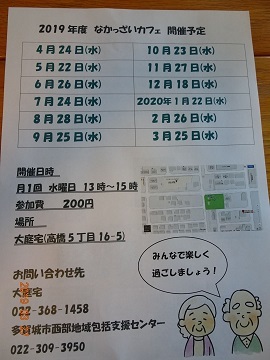 2019年度 なかっざいカフェ 開催予定
4月24日(水) 10月23日(水)
5月22日(水) 11月27日(水)
6月26日(水) 12月18日(水)
7月24日(水) 2020年1月22日(水)
8月28日(水) 2月26日(水)
9月25日(水) 3月25日(水)
開催日時
月1回 水曜日 13時~15時
参加費 200円
場所
大庭宅(高橋5丁目16-5)
みんなで楽しく
過ごしましょう!
お問い合わせ先
大庭宅
022-368-1458
多賀城市西部地域包括支援センター
022-309-3950